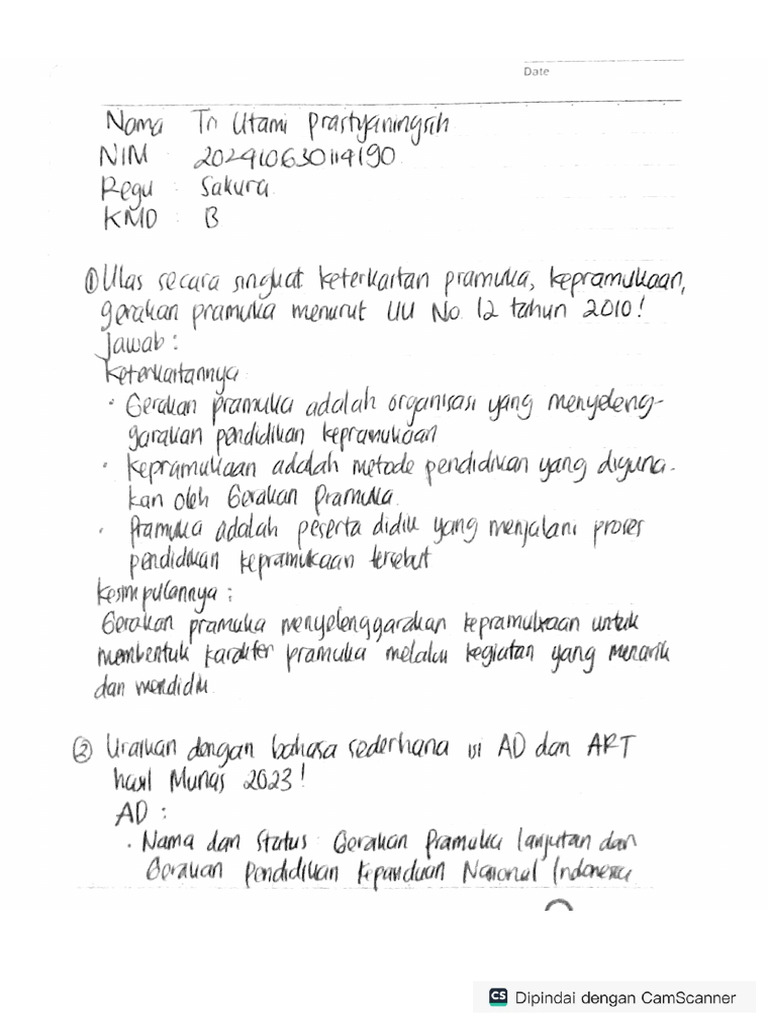 Date
Nama Tri Utami Prastyaningsih
NIM : 202410630114190
Regu : Sakura
KMD : B
① Ulas secara singkat keterkaitan pramuka, kepramukaan,
gerakan pramuka menurut UU No. 12 tahun 2010!
Jawab :
Keterkaitannya
• Gerakan pramuka adalah organisasi yang menyeleng-
garakan pendidikan kepramukaan
• Kepramukaan adalah metode pendidikan yang diguna-
kan oleh Gerakan Pramuka.
• Pramuka adalah peserta didik yang menjalani proses
pendidikan kepramukaan tersebut
Kesimpulannya :
Gerakan pramuka menyelenggarakan kepramukaan untuk
membentuk karakter pramuka melalui kegiatan yang menarik
dan mendidik
② Uraikan dengan bahasa sederhana isi AD dan ART
hasil Munas 2023!
AD :
• Nama dan Status : Gerakan Pramuka lanjutan dari
Gerakan Pendidikan Kepanduan Nasional Indonesia
CS Dipindai dengan CamScanner